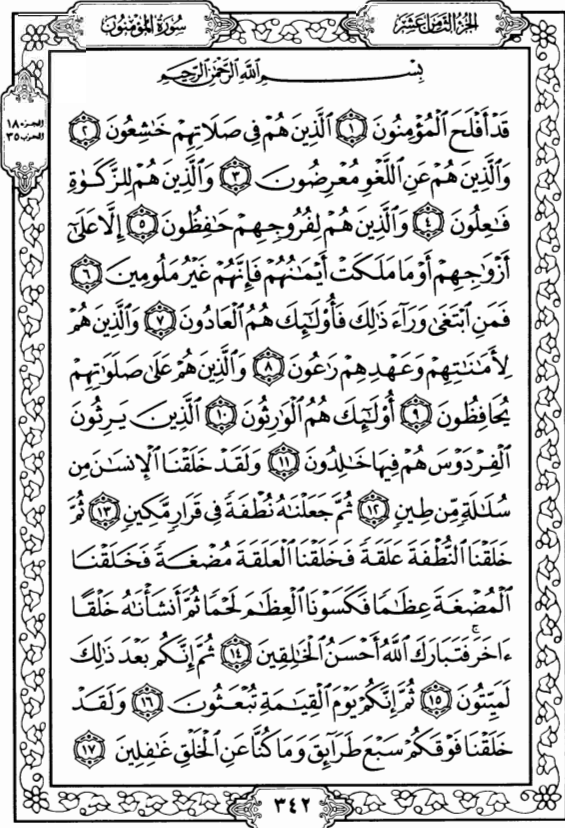 الجزء الثامن عشر
سورة المؤمنون
الجزء ١٨
الحزب ٣٥
بِسْمِ اللَّهِ الرَّحْمَٰنِ الرَّحِيمِ
قَدْ أَفْلَحَ الْمُؤْمِنُونَ ١ الَّذِينَ هُمْ فِي صَلَاتِهِمْ خَاشِعُونَ ٢
وَالَّذِينَ هُمْ عَنِ اللَّغْوِ مُعْرِضُونَ ٣ وَالَّذِينَ هُمْ لِلزَّكَوٰةِ
فَاعِلُونَ ٤ وَالَّذِينَ هُمْ لِفُرُوجِهِمْ حَافِظُونَ ٥ إِلَّا عَلَىٰ
أَزْوَاجِهِمْ أَوْ مَا مَلَكَتْ أَيْمَانُهُمْ فَإِنَّهُمْ غَيْرُ مَلُومِينَ ٦
فَمَنِ ابْتَغَىٰ وَرَاءَ ذَٰلِكَ فَأُولَٰئِكَ هُمُ الْعَادُونَ ٧ وَالَّذِينَ هُمْ
لِأَمَانَاتِهِمْ وَعَهْدِهِمْ رَاعُونَ ٨ وَالَّذِينَ هُمْ عَلَىٰ صَلَوَاتِهِمْ
يُحَافِظُونَ ٩ أُولَٰئِكَ هُمُ الْوَارِثُونَ ١٠ الَّذِينَ يَرِثُونَ
الْفِرْدَوْسَ هُمْ فِيهَا خَالِدُونَ ١١ وَلَقَدْ خَلَقْنَا الْإِنسَانَ مِن
سُلَالَةٍ مِّن طِينٍ ١٢ ثُمَّ جَعَلْنَاهُ نُطْفَةً فِي قَرَارٍ مَّكِينٍ ١٣ ثُمَّ
خَلَقْنَا النُّطْفَةَ عَلَقَةً فَخَلَقْنَا الْعَلَقَةَ مُضْغَةً فَخَلَقْنَا
الْمُضْغَةَ عِظَامًا فَكَسَوْنَا الْعِظَامَ لَحْمًا ثُمَّ أَنشَأْنَاهُ خَلْقًا
ءَاخَرَ ۚ فَتَبَارَكَ اللَّهُ أَحْسَنُ الْخَالِقِينَ ١٤ ثُمَّ إِنَّكُم بَعْدَ ذَٰلِكَ
لَمَيِّتُونَ ١٥ ثُمَّ إِنَّكُمْ يَوْمَ الْقِيَامَةِ تُبْعَثُونَ ١٦ وَلَقَدْ
خَلَقْنَا فَوْقَكُمْ سَبْعَ طَرَائِقَ وَمَا كُنَّا عَنِ الْخَلْقِ غَافِلِينَ ١٧
٣٤٢